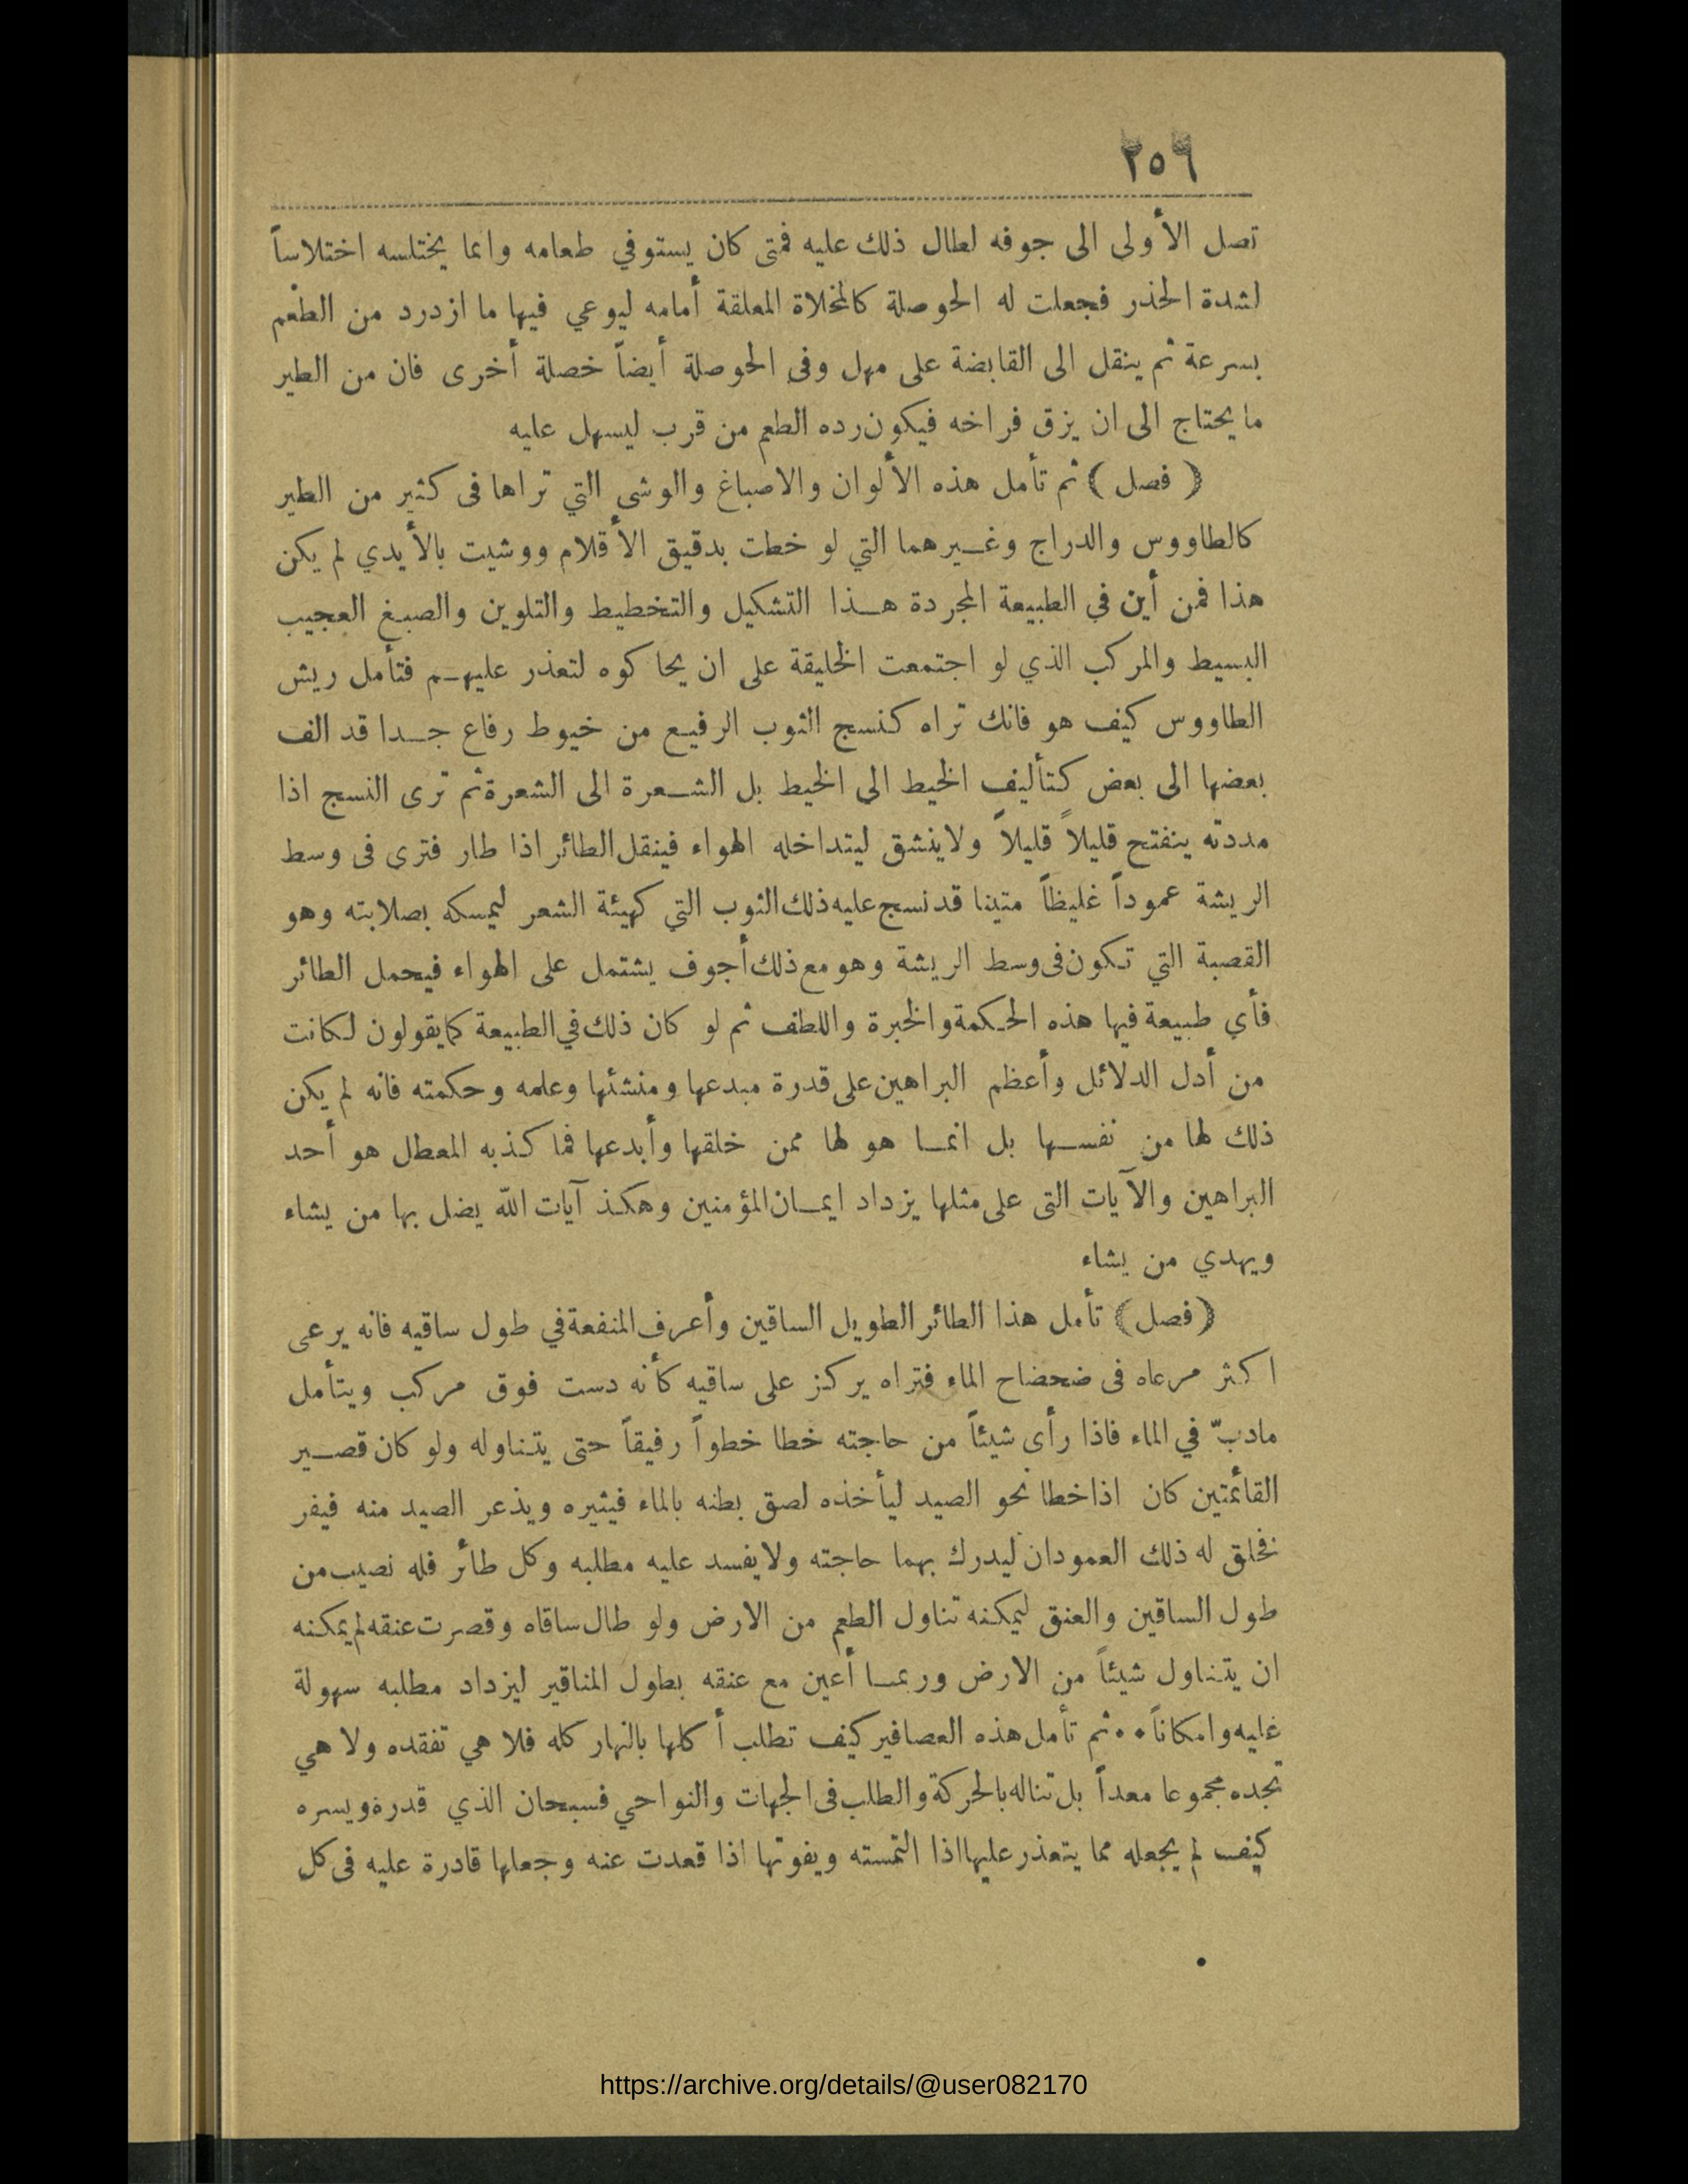 ٢٥٦
تصل الأولى الى جوفه لطال ذلك عليه فمتى كان يستوفي طعامه وانما يختلسه اختلاساً
لشدة الحذر فجعلت له الحوصلة كالمخلاة المعلقة أمامه ليوعي فيها ما ازدرد من الطعم
بسرعة ثم ينقل الى القابضة على مهل وفى الحوصلة أيضاً خصلة أخرى فان من الطير
ما يحتاج الى ان يزق فراخه فيكون رده الطعم من قرب ليسهل عليه
﴿ فصل ﴾ ثم تأمل هذه الألوان والاصباغ والوشى التي تراها فى كثير من الطير
كالطاووس والدراج وغيرهما التي لو خطت بدقيق الأقلام ووشيت بالأيدي لم يكن
هذا فمن أين في الطبيعة المجردة هذا التشكيل والتخطيط والتلوين والصبغ العجيب
البسيط والمركب الذي لو اجتمعت الخليقة على ان يحاكوه لتعذر عليهم فتأمل ريش
الطاووس كيف هو فانك تراه كنسج الثوب الرفيع من خيوط رفاع جدا قد الف
بعضها الى بعض كتأليف الخيط الى الخيط بل الشعرة الى الشعرة ثم ترى النسج اذا
مددته ينفتح قليلاً قليلاً ولا ينشق ليتداخله الهواء فينقل الطائر اذا طار فترى فى وسط
الريشة عموداً غليظاً متينا قد نسج عليه ذلك الثوب التي كهيئة الشعر ليمسكه بصلابته وهو
القصبة التي تكون فى وسط الريشة وهو مع ذلك أجوف يشتمل على الهواء فيحمل الطائر
فأي طبيعة فيها هذه الحكمة والخبرة واللطف ثم لو كان ذلك في الطبيعة كما يقولون لكانت
من أدل الدلائل وأعظم البراهين على قدرة مبدعها ومنشئها وعلمه وحكمته فانه لم يكن
ذلك لها من نفسها بل انما هو لها ممن خلقها وأبدعها فما كذبه المعطل هو أحد
البراهين والآيات التى على مثلها يزداد ايمان المؤمنين وهكذ آيات الله يضل بها من يشاء
ويهدي من يشاء
﴿فصل﴾ تأمل هذا الطائر الطويل الساقين وأعرف المنفعة في طول ساقيه فانه يرعى
اكثر مرعاه فى ضحضاح الماء فتراه يركز على ساقيه كأنه دست فوق مركب ويتأمل
مادبّ في الماء فاذا رأى شيئاً من حاجته خطا خطواً رفيقاً حتى يتناوله ولو كان قصير
القائمتين كان اذا خطا نحو الصيد ليأخذه لصق بطنه بالماء فيثيره ويذعر الصيد منه فيفر
فخلق له ذلك العمودان ليدرك بهما حاجته ولا يفسد عليه مطلبه وكل طائر فله نصيب من
طول الساقين والعنق ليمكنه تناول الطعم من الارض ولو طال ساقاه وقصرت عنقه لم يمكنه
ان يتناول شيئاً من الارض وربما أعين مع عنقه بطول المناقير ليزداد مطلبه سهولة
عليه وامكاناً •• ثم تأمل هذه العصافير كيف تطلب أكلها بالنهار كله فلا هي تفقده ولا هي
تجده مجموعا معداً بل تناله بالحركة والطلب فى الجهات والنواحي فسبحان الذي قدره ويسره
كيف لم يجعله مما يتعذر عليها اذا التمسته ويفوتها اذا قعدت عنه وجعلها قادرة عليه فى كل
https://archive.org/details/@user082170